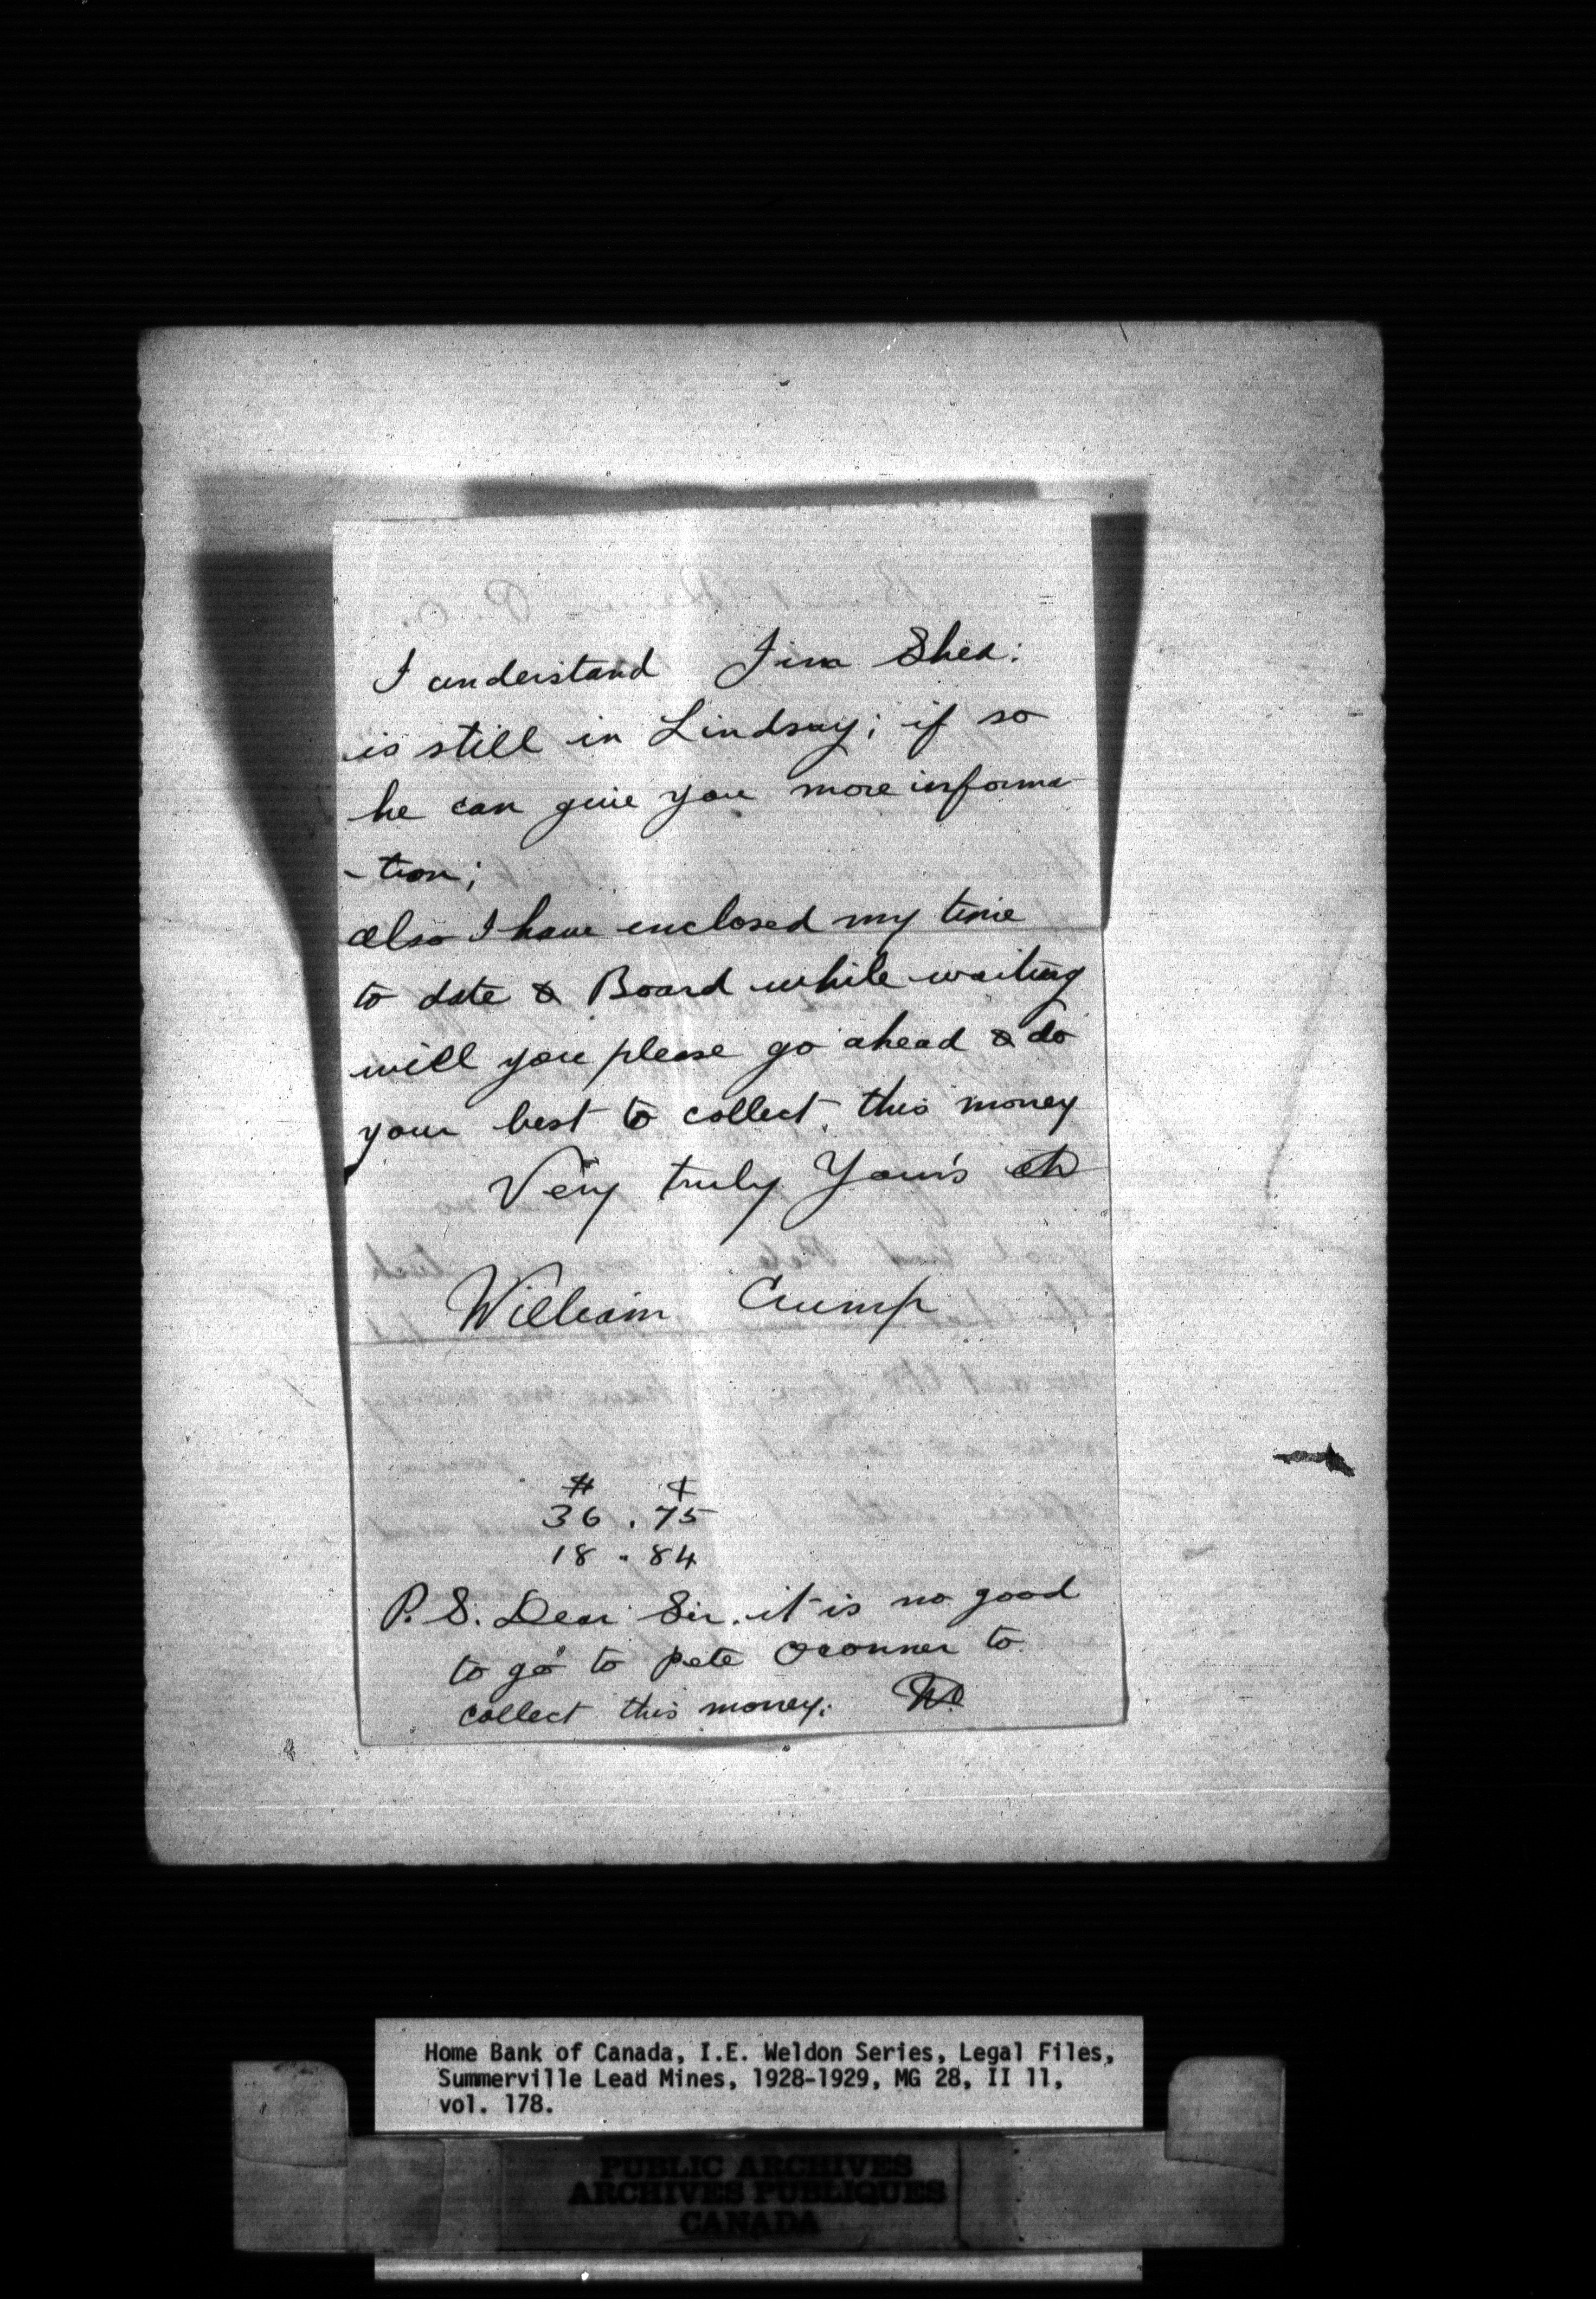 I understand Jim Shea:
is still in Lindsay; if so
he can give you more informa
- tion;
also I have enclosed my time
to date & Board while waiting
will you please go ahead & do
your best to collect this money
Very truly Your's
William Crump
$ ¢
36 . 75
18 . 84
P. S. Dear Sir. it is no good
to go to Pete Oconner to
collect this money.
Home Bank of Canada, I.E. Weldon Series, Legal Files,
Summerville Lead Mines, 1928-1929, MG 28, II 11,
vol. 178.
PUBLIC ARCHIVES
ARCHIVES PUBLIQUES
CANADA